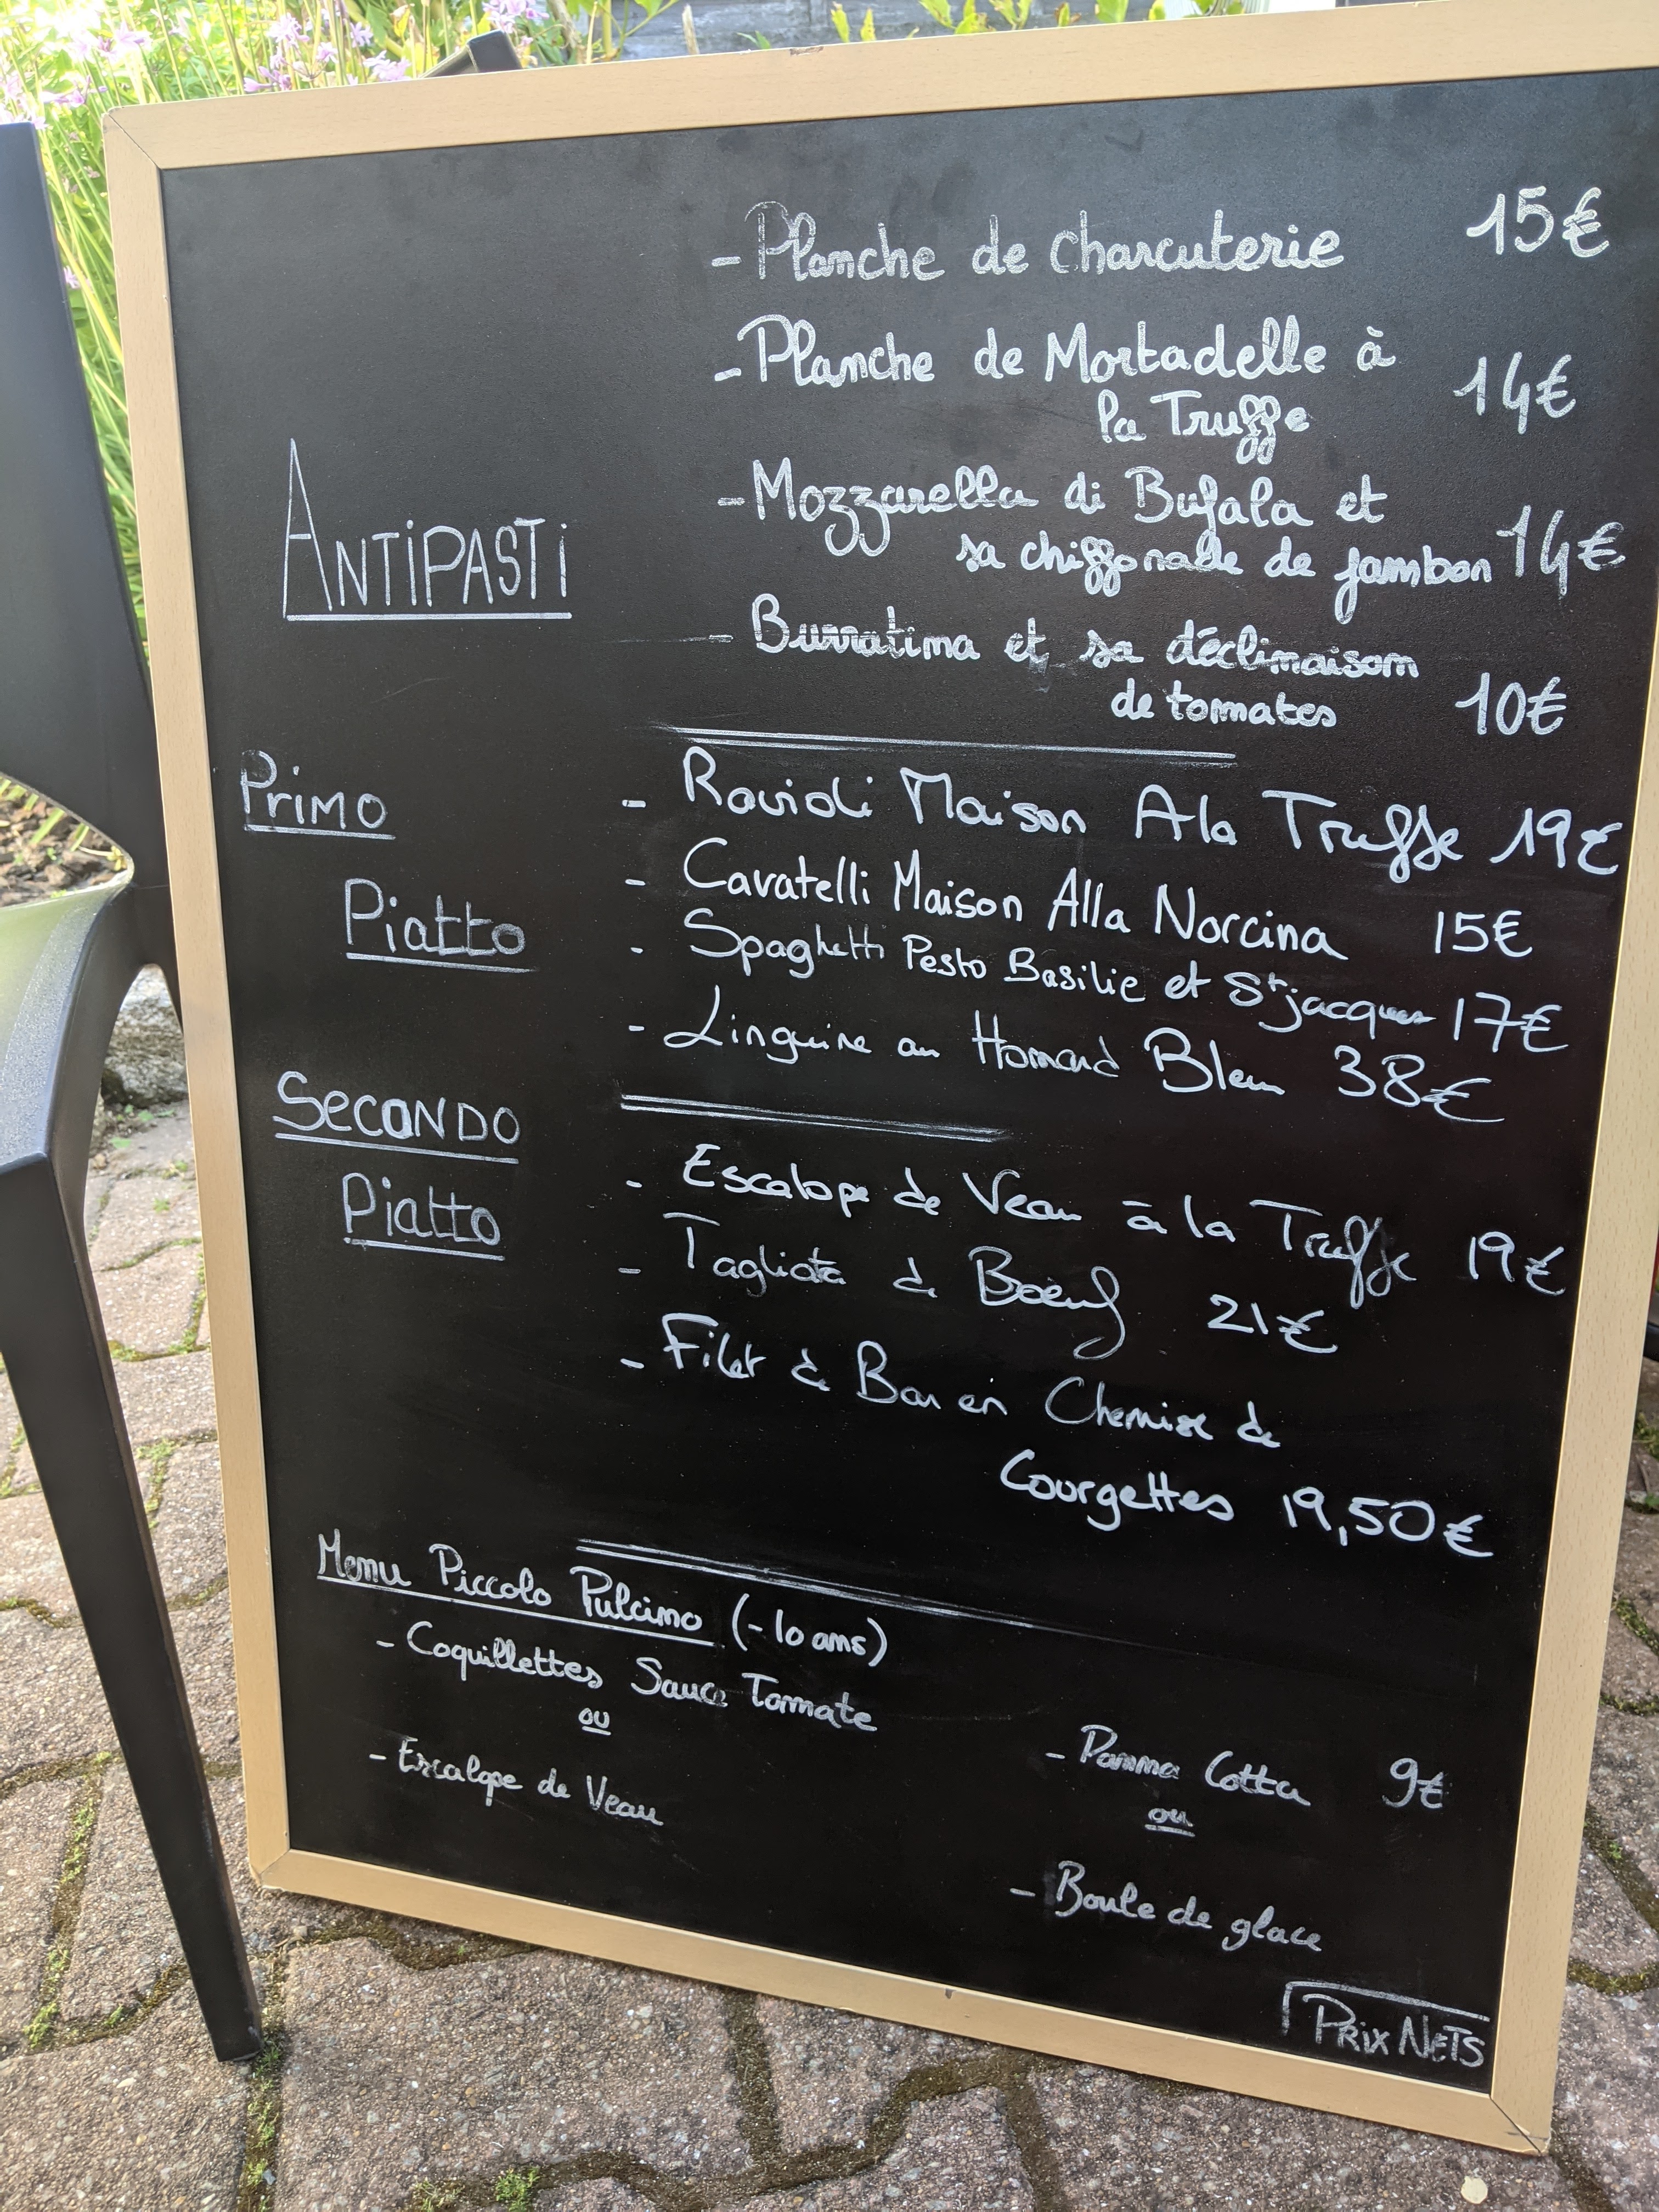 - Planche de charcuterie 15€
- Planche de Mortadelle à
la Truffe 14€
- Mozzarella di Bufala et
sa chiffonade de jambon 14€
ANTIPASTI
- Burratina et sa déclinaison
de tomates 10€
Primo
Piatto
- Ravioli Maison A la Truffe 19€
- Cavatelli Maison Alla Norcina 15€
- Spaghetti Pesto Basilic et St jacques 17€
- Linguine au Homard Bleu 38€
SECONDO
Piatto
- Escalope de Veau à la Truffe 19€
- Tagliata de Boeuf 21€
- Filet de Bar en Chemise de
Courgettes 19,50€
Menu Piccolo Pulcino (-10 ans)
- Coquillettes Sauce Tomate
ou
- Escalope de Veau
- Panna Cotta 9€
ou
- Boule de glace
PRIX NETS